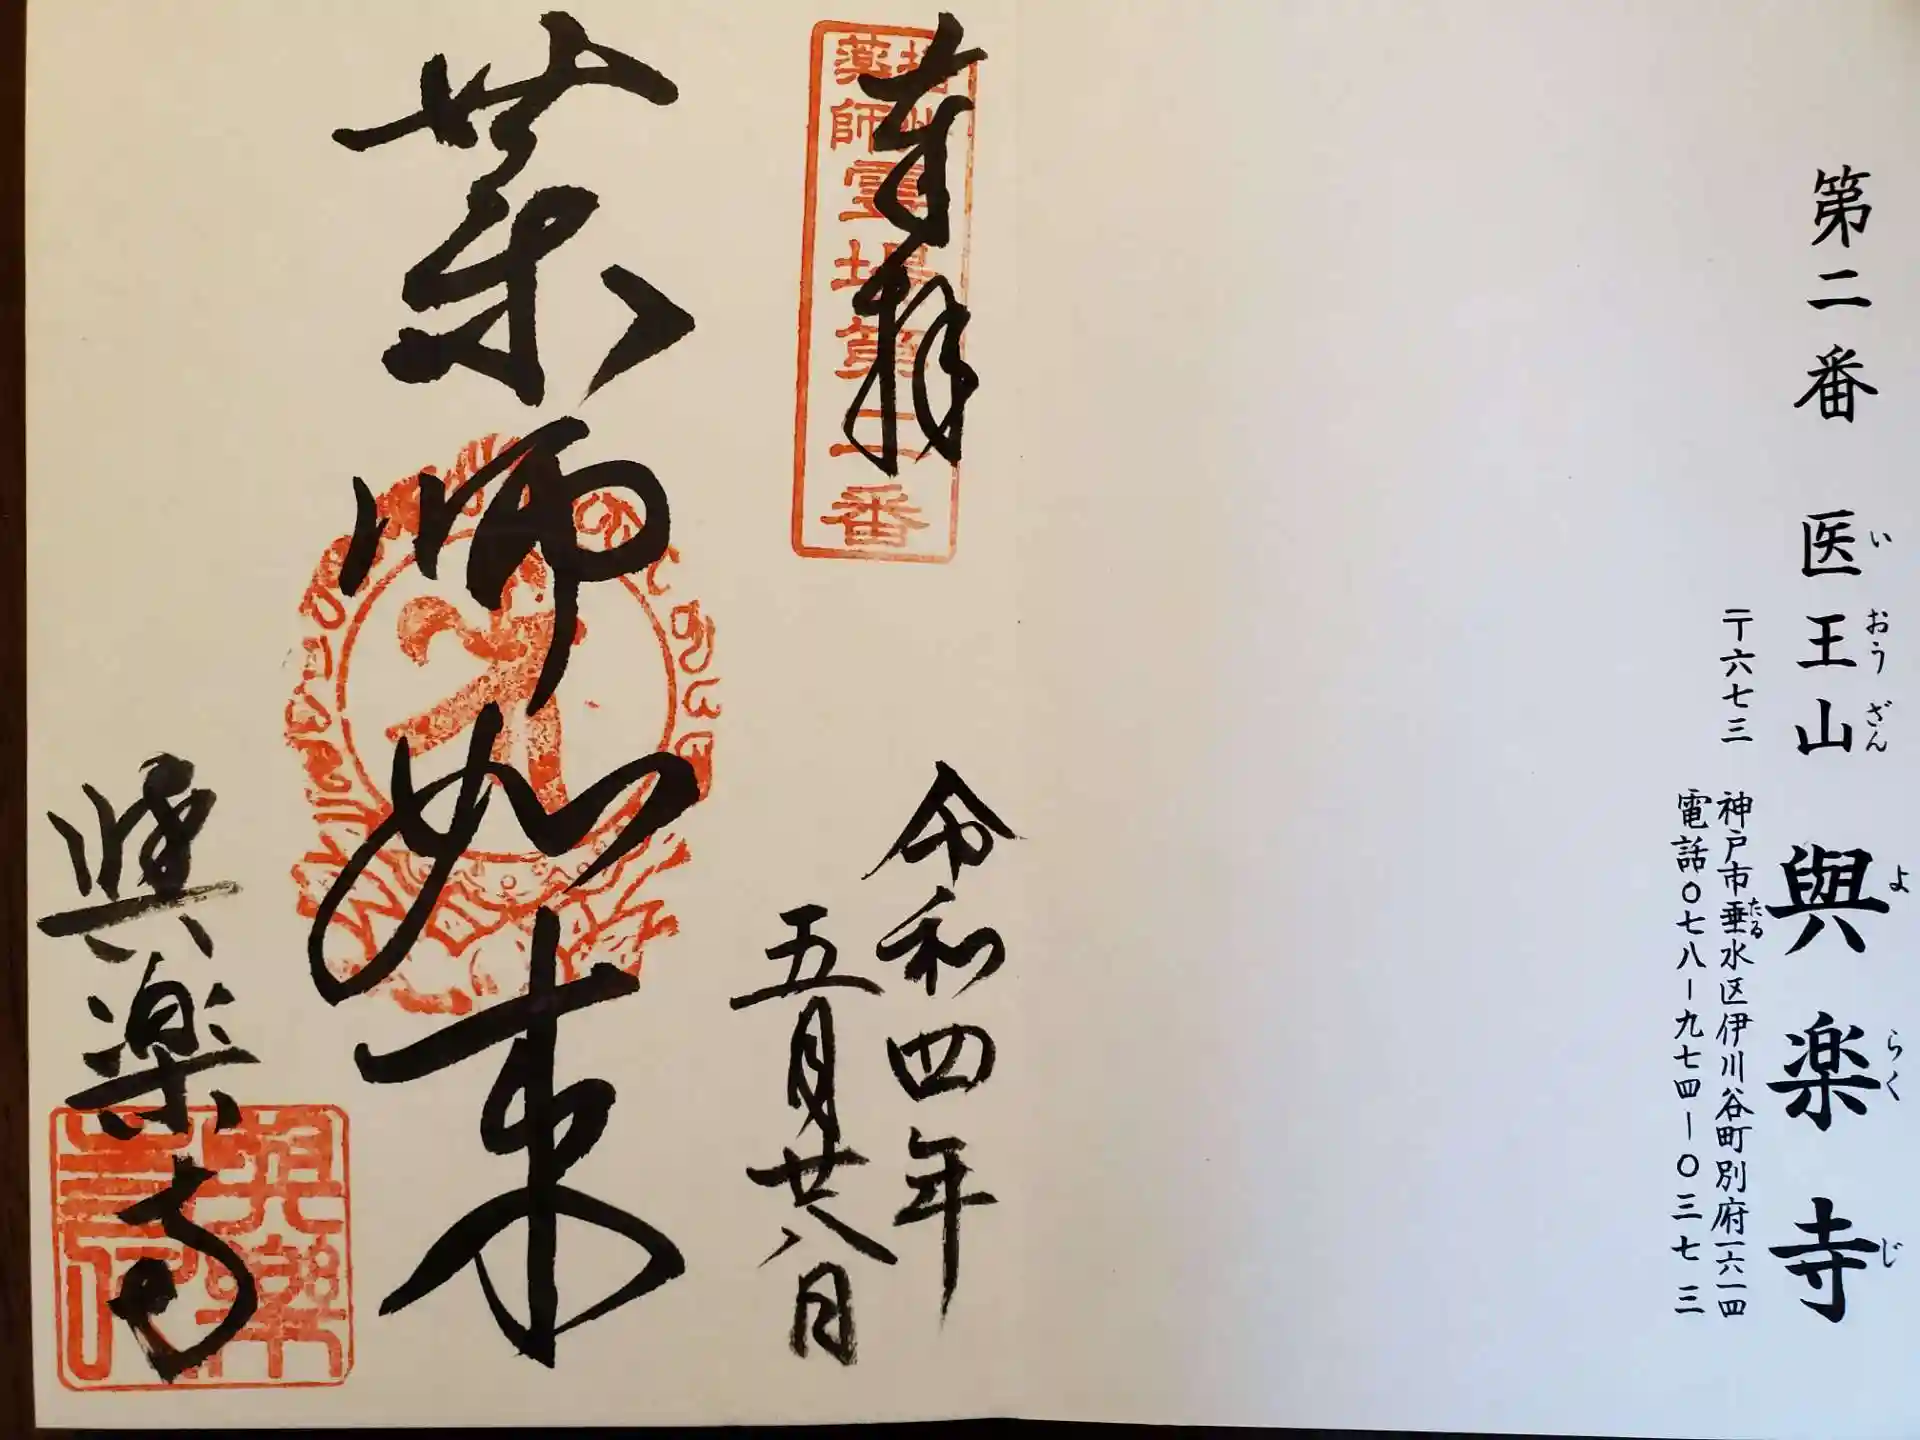 第二番 医王山 與楽寺
いおうざん よらくじ
〒六七三 神戸市垂水区伊川谷町別府一六一四
たる
電話〇七八ー九七四ー〇三七三
奉拝
薬師霊場第二番
令和四年
五月廿八日
薬師如来
與楽寺